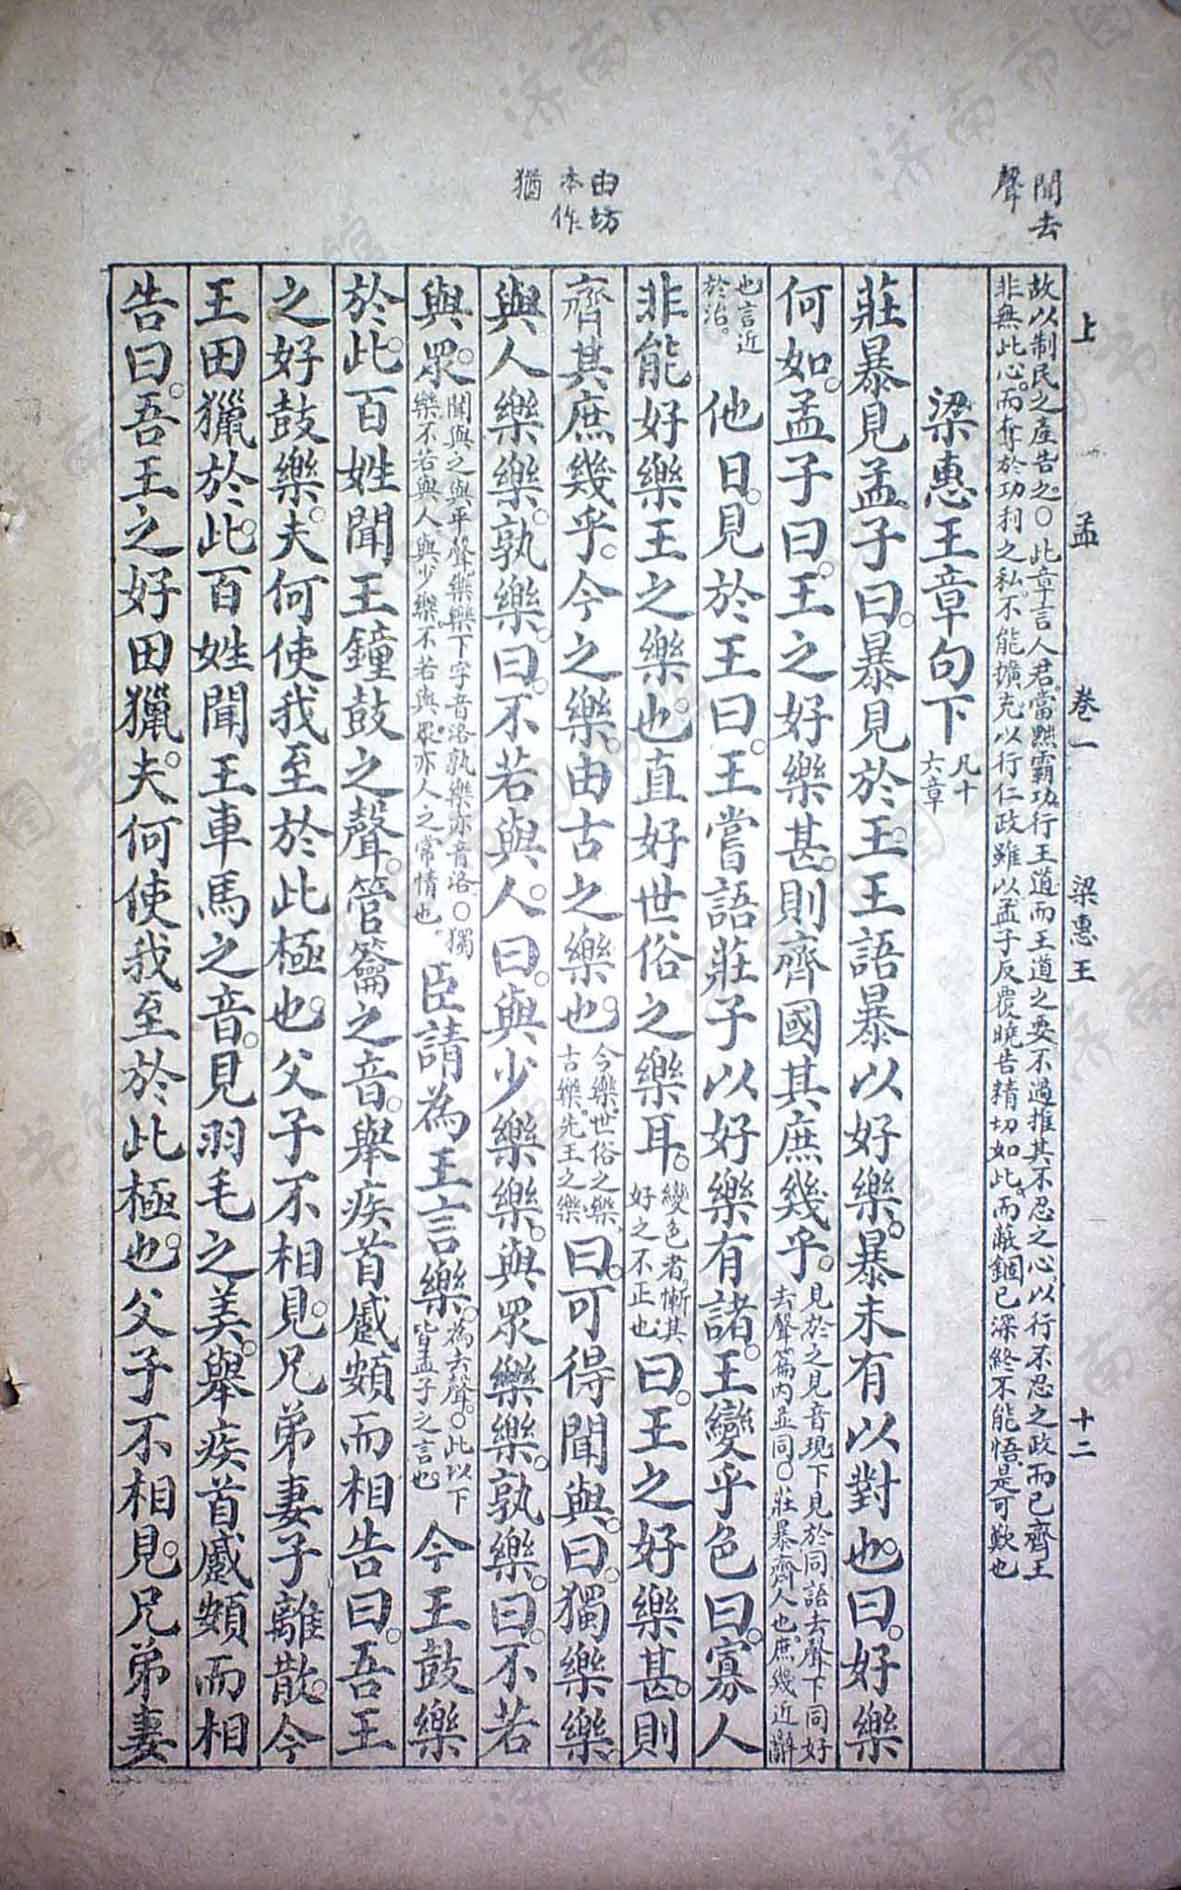 聞去
聲
由坊
本作
猶
上孟 卷一 梁惠王 十二
故以制民之產告之○此章言人君當黜霸功行王道而王道之要不過推其不忍之心以行不忍之政而已齊王
非無此心而奪於功利之私不能擴充以行仁政雖以孟子反覆曉告精切如此而蔽錮已深終不能悟是可歎也
梁惠王章句下 凡十
六章
莊暴見孟子曰暴見於王王語暴以好樂暴未有以對也曰好樂
何如孟子曰王之好樂甚則齊國其庶幾乎 見於之見音現下見於同語去聲下同好
去聲篇內並同○莊暴齊人也庶幾近辭
也言近
於治。
他日見於王曰王嘗語莊子以好樂有諸王變乎色曰寡人
非能好樂王之樂也直好世俗之樂耳 變色者慚其
好之不正也
曰王之好樂甚則
齊其庶幾乎今之樂由古之樂也 今樂世俗之樂
古樂先王之樂
曰可得聞與曰獨樂樂
與人樂樂孰樂曰不若與人曰與少樂樂與眾樂樂孰樂曰不若
與眾 聞與之與平聲樂樂下字音洛孰樂亦音洛○獨
樂不若與人與少樂不若與眾亦人之常情也
臣請為王言樂 為去聲○此以下
皆孟子之言也
今王鼓樂
於此百姓聞王鐘鼓之聲管籥之音舉疾首蹙頞而相告曰吾王
之好鼓樂夫何使我至於此極也父子不相見兄弟妻子離散今
王田獵於此百姓聞王車馬之音見羽毛之美舉疾首蹙頞而相
告曰吾王之好田獵夫何使我至於此極也父子不相見兄弟妻